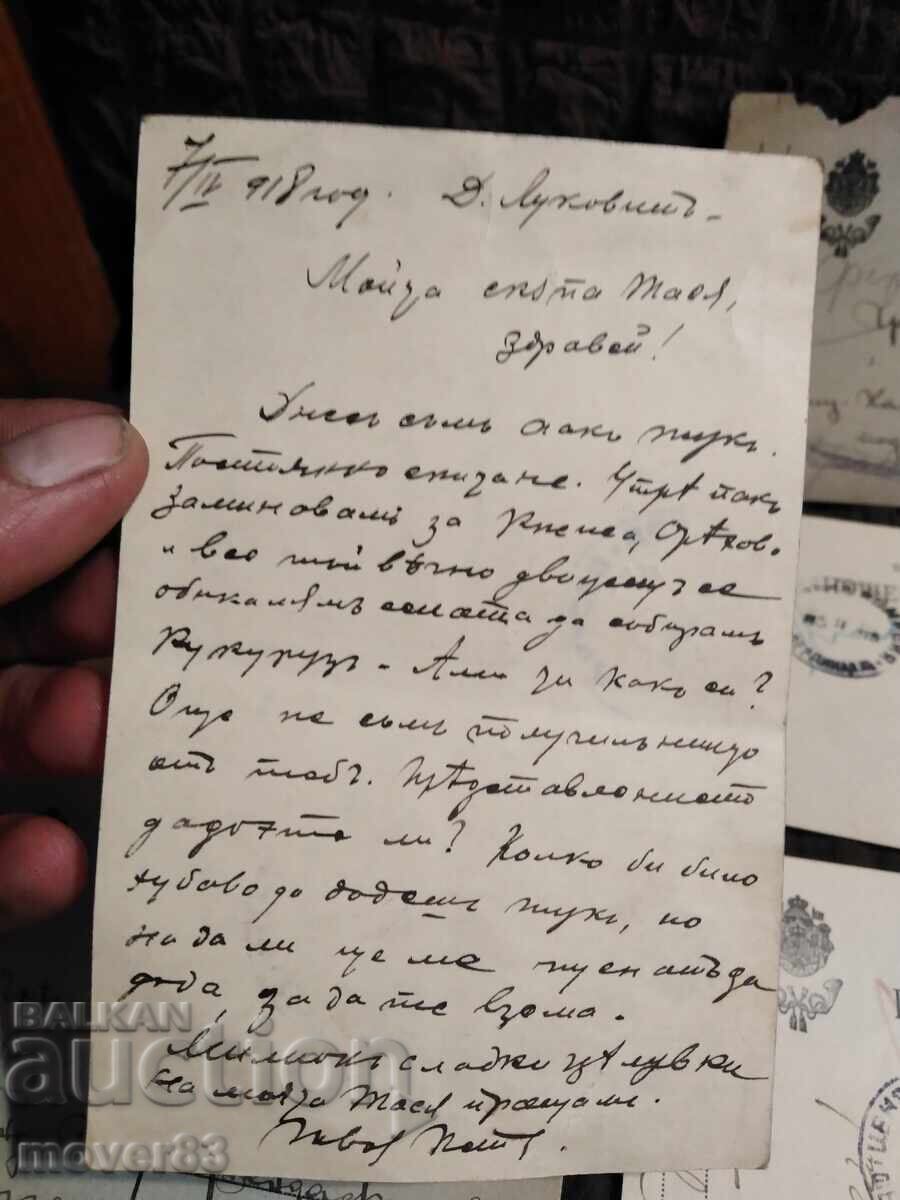 7/IV 918 год. Д. Луковитъ.
Мойта скѫпа Тася,
здравей!
Днесъ съмъ пакъ тукъ.
Постоянно скитане. Утрѣ пакъ
заминовамъ за Кнежа, Орѣхово
и все тъй вѣчно
обикалямъ селата да събирамъ
кукурузъ. Ами ти какъ си?
Още не съмъ получилъ нищо
отъ тебъ. Прѣдставлението
дадохте ли? Колко би било
хубаво да додешъ тукъ, но
на да ли ще ме пуснатъ да
дода, за да те взема.
Милионъ сладки цѣлувки
на моята Тася пращамъ.
BALKAN
auction
mover83